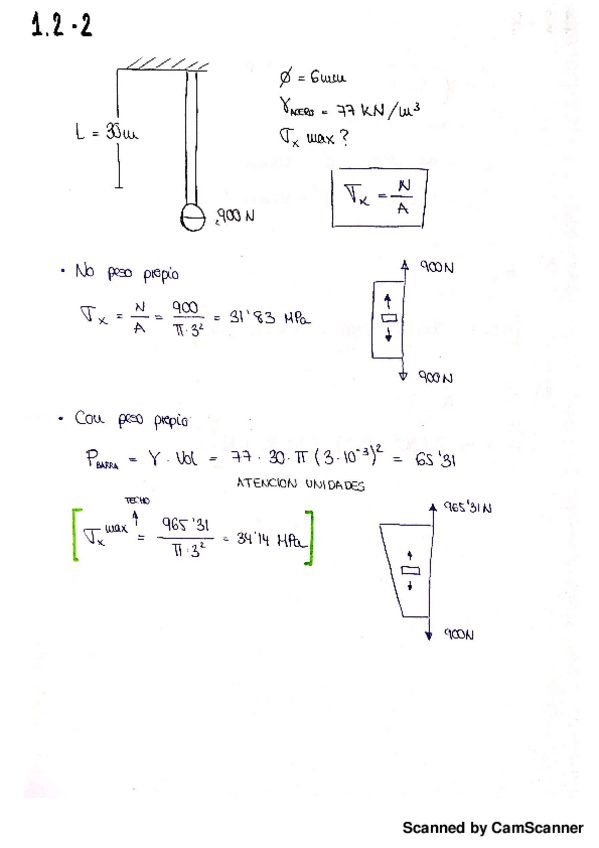 1.2-2
Ø = 6mm
γACERO = 77 KN/m³
L = 30m
σx max?
σx = N/A
900 N
• No peso propio
900N
σx = N/A = 900/π·3² = 31'83 MPa
900N
• Con peso propio
PBARRA = γ · Vol = 77 · 30 · π (3·10⁻³)² = 65'31
ATENCION UNIDADES
TECHO
965'31N
σx max = 965'31/π·3² = 34'14 MPa
900N
Scanned by CamScanner